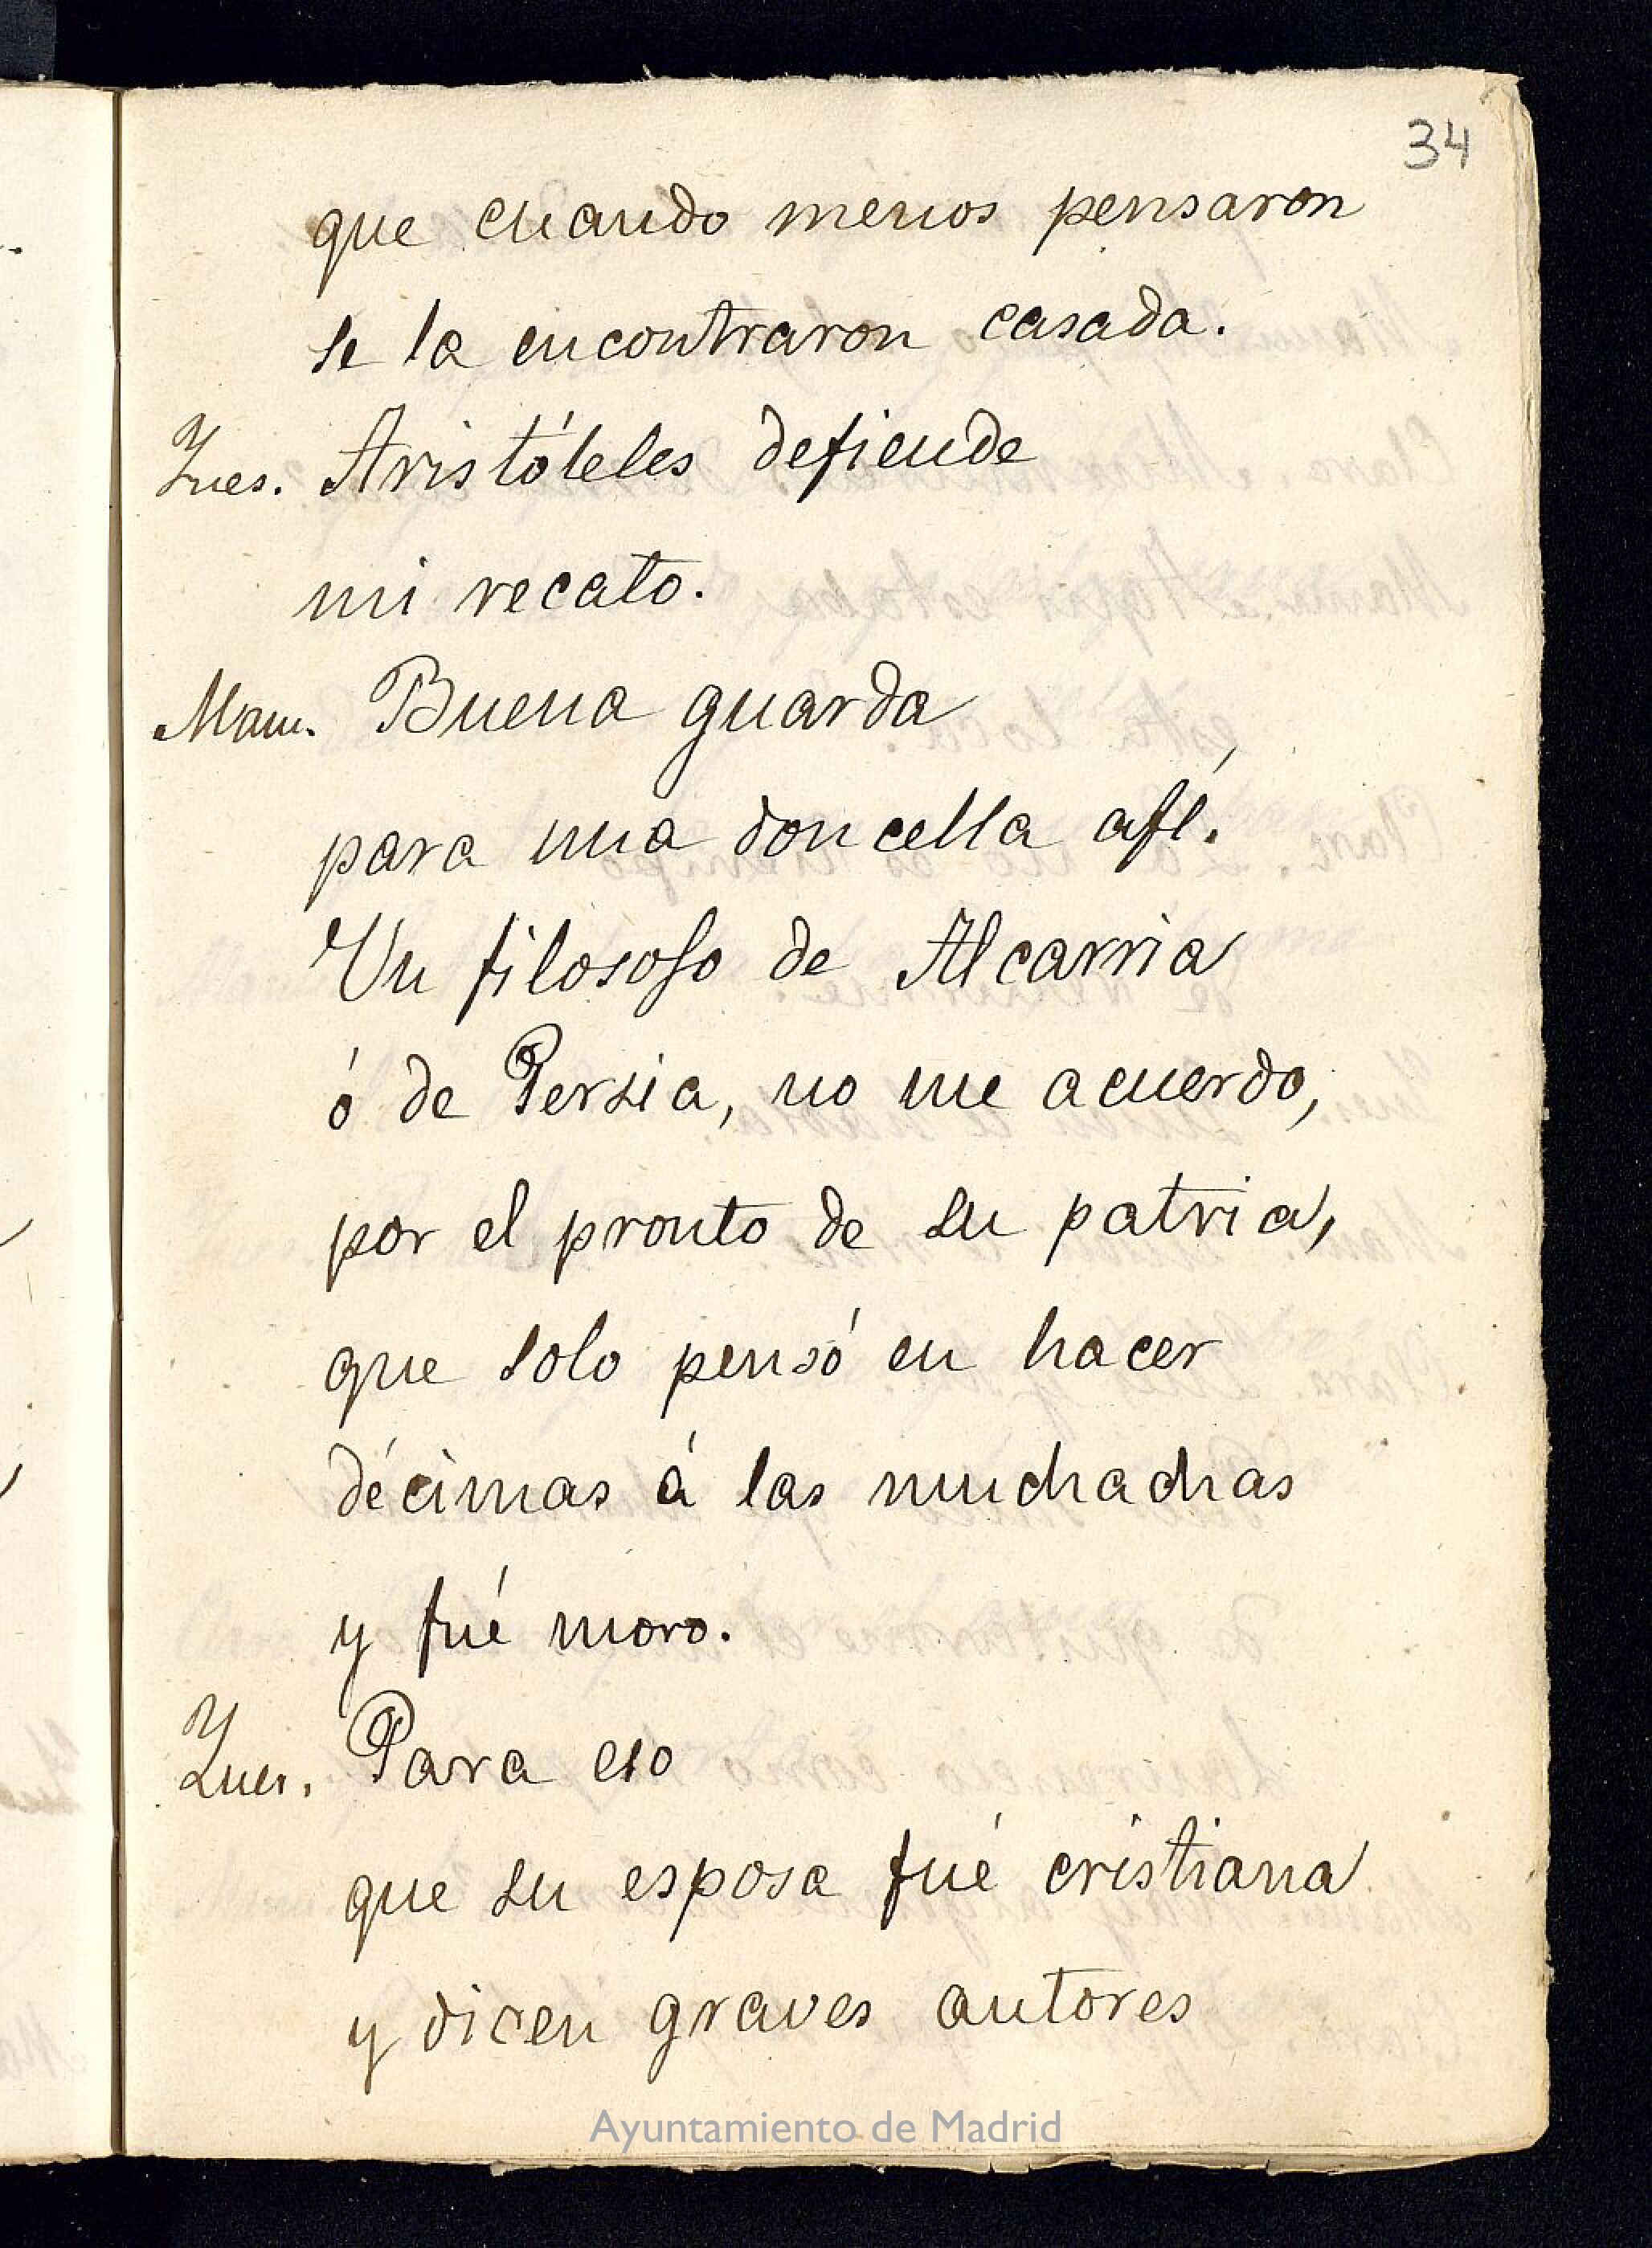 34
que cuando menos pensaron
se la encontraron casada.
Ynes. Aristóteles defiende
mi recato.
Manu. Buena guarda
para una doncella afé.
Un filosofo de Alcarria
ó de Persia, no me acuerdo,
por el pronto de su patria,
que solo pensó en hacer
décimas á las muchachas
y fué moro.
Ynes. Para eso
que su esposa fué cristiana
y dicen graves autores
Ayuntamiento de Madrid